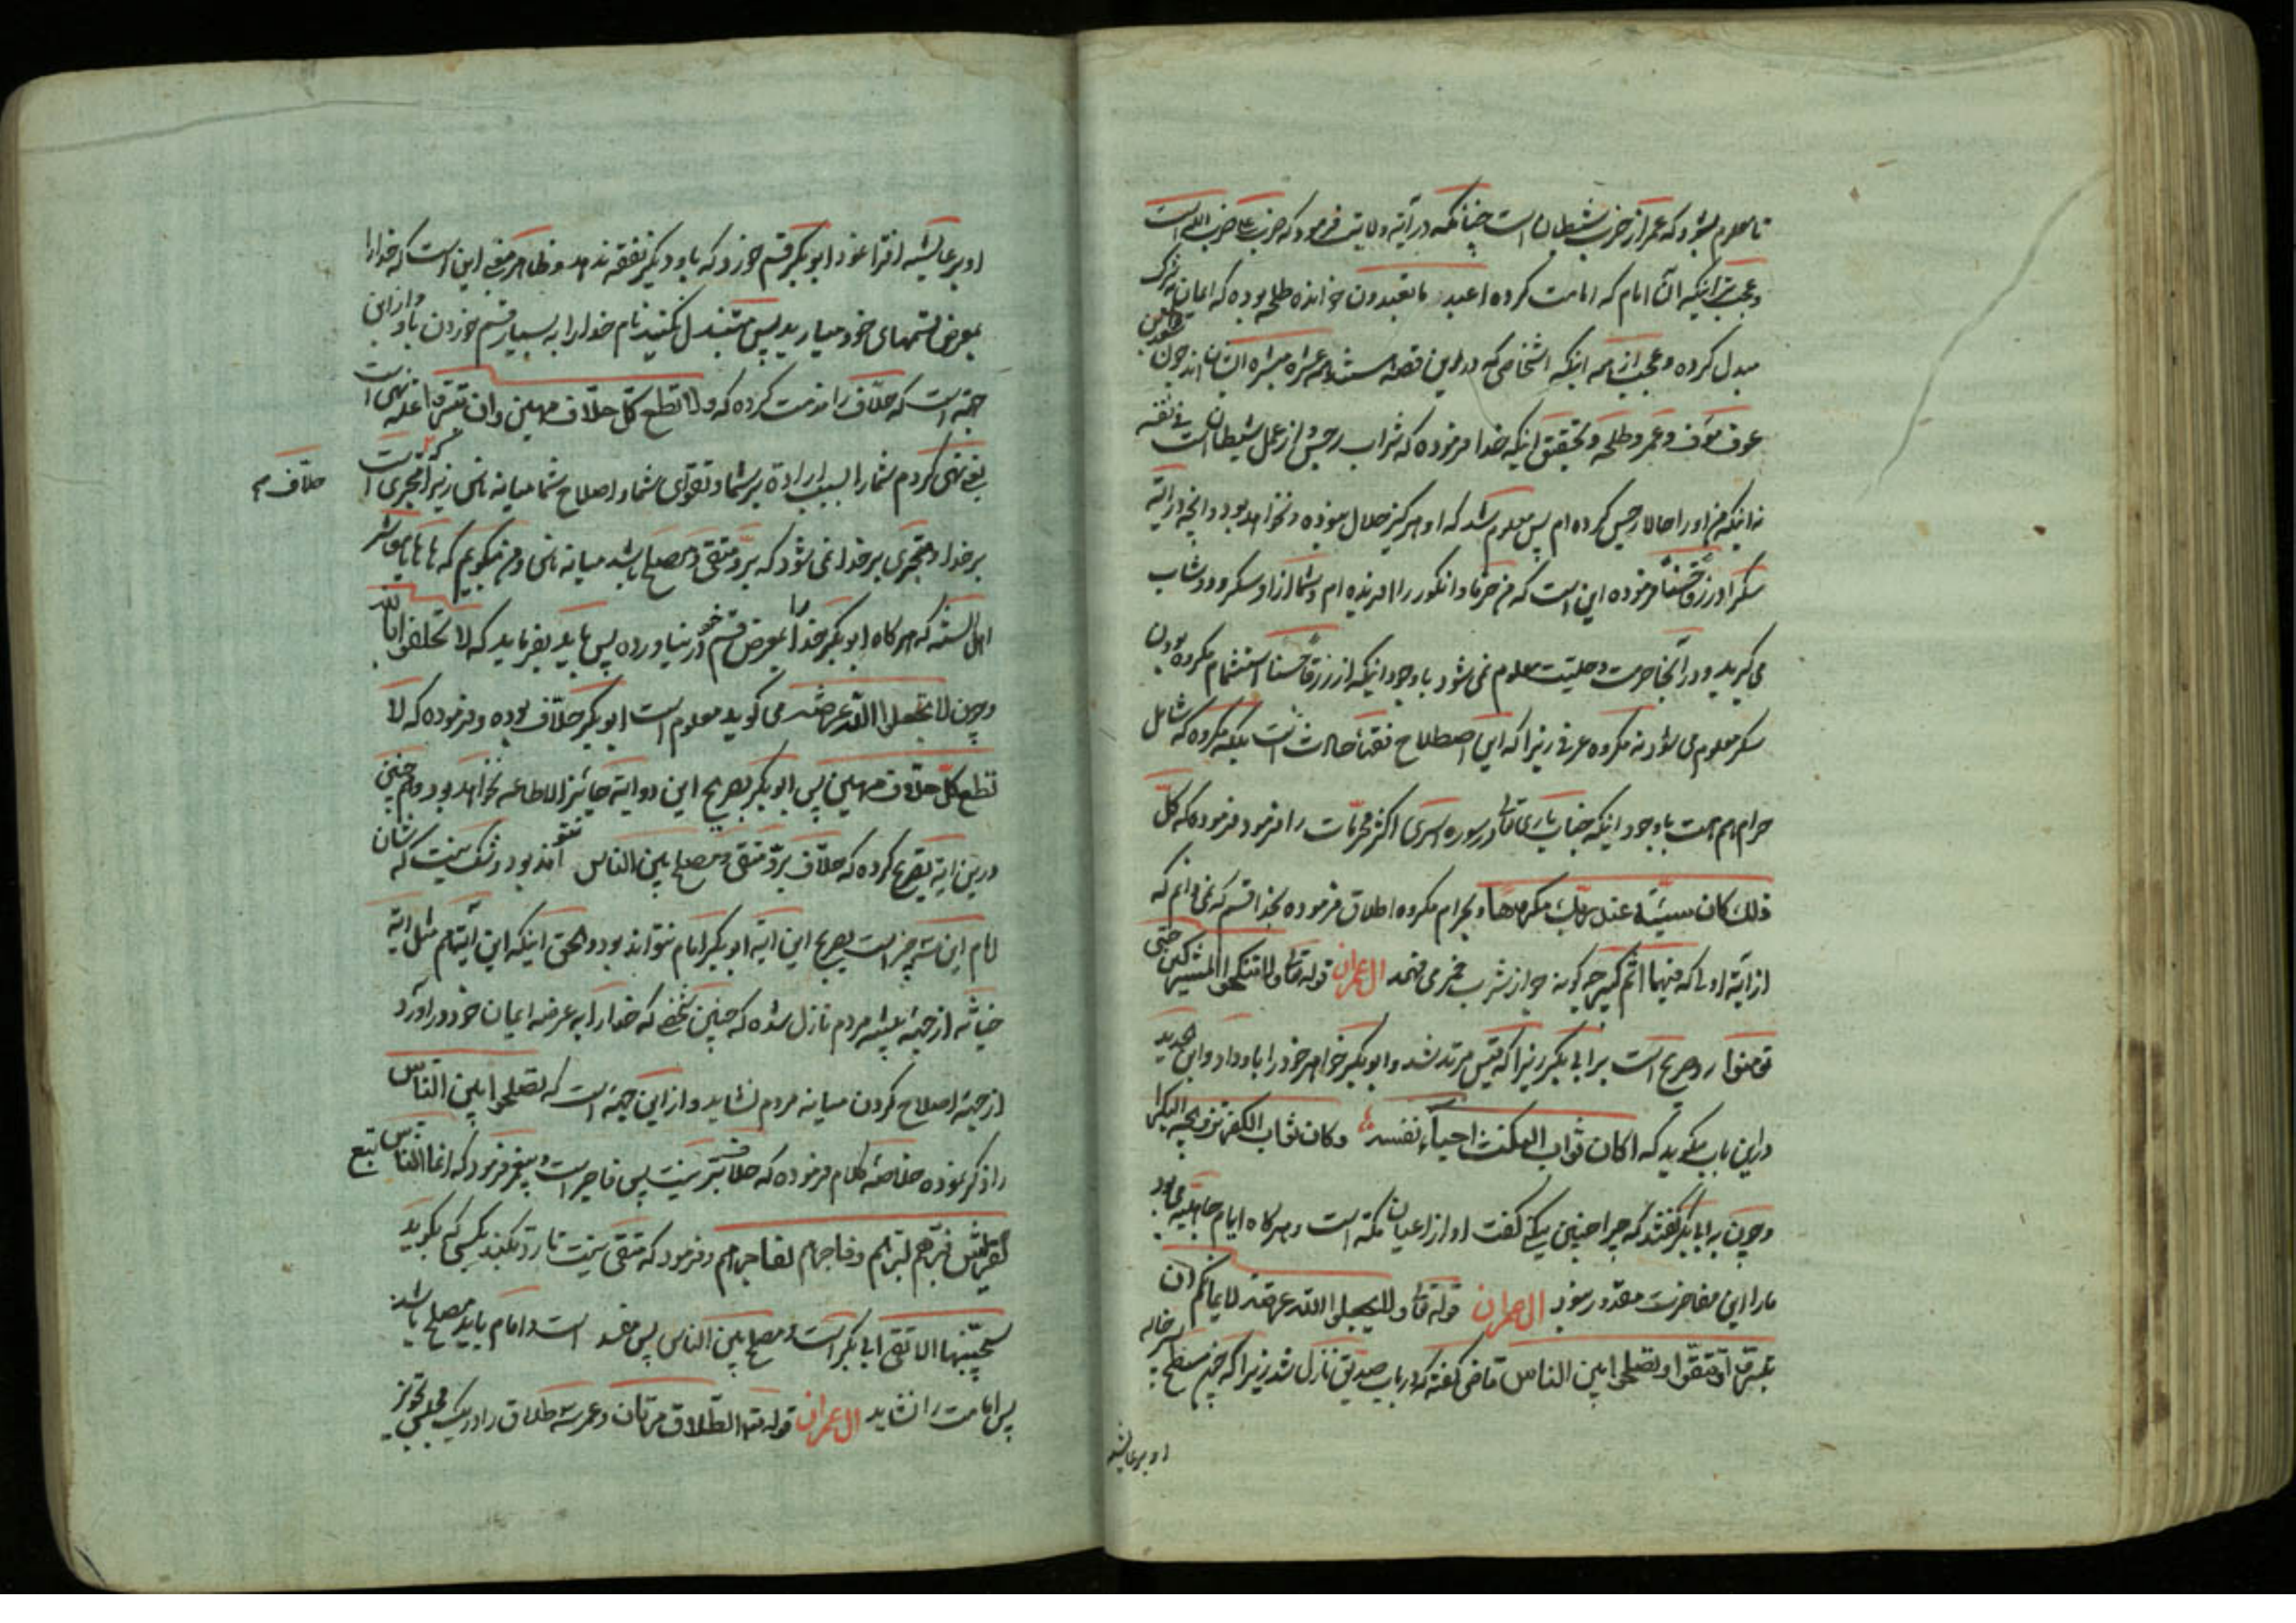 تا معلوم بشود که عمر از حزب شیطان است چنانکه در آیه ولایت فرمود که حزب علی حزب الله است
و عجب تر اینکه آن امام که امامت کرده اعبد ما تعبدون خوانده طلحه بوده که ایمان به شرک
مبدل کرده و عجب از همه اینکه اشخاصی که در این قصه هستند عشره مبشره ایشان اند چون
عوف و عمر و طلحه و تحقیق اینکه خدا فرموده که شراب رجس و از عمل شیطان است فی نفسه
نه اینکه من او را حالا رجس کرده ام پس معلوم شد که او هرگز حلال نبوده و نخواهد بود و آنچه در آیه
سکرا و رزقا حسنا فرموده این است که من خرما و انگور را آفریده ام و شما از او سکر و دوشاب
می گیرید و در آنجا حرمت و حلیت معلوم نمی شود با وجود اینکه از رزقا حسنا استشمام مکروه بودن
سکر معلوم می شود نه مکروه عرفی زیرا که این اصطلاح فقهاء حادث است بلکه مکروه که شامل
حرام هم هست با وجود اینکه جناب باری تعالی در سوره اسری اکثر محرمات را فرمود فرموده که کل
ذلک کان سیئه عند ربک مکروها و بحرام مکروه اطلاق فرموده بخدا قسم که نمی دانم که
از آیه اولی که فیهما اثم کبیر چه گونه جواز شرب خمر می فهمد ال عمران قوله تعالی ولا تنکحوا المشرکین حتی
یؤمنوا رد صریح است بر ابی بکر زیرا که قیس مرتد شد و ابو بکر خواهر خود را باو داد و ابن ابی الحدید
در این باب میگوید که اکان ثواب النکث احیاء نفسه وکان ثواب الکفر تزویجه البکرا
و چون به ابا بکر گفتند که چرا چنین میکنی گفت او از اعیان مکه است و هرگاه ایام جاهلیة می بود
ما را این مفاخرت مقدور نبود ال عمران قوله تعالی ولا تجعلوا الله عرضة لایمانکم ان
تبروا و تتقوا و تصلحوا بین الناس قاضی گفته که در باب صدیق نازل شد زیرا که چون مسطح پسر خاله
او بر عایشه
او بر عایشه افترا نمود ابو بکر قسم خورد که باو دیگر نفقه ندهد و ظاهر معنی این است که خدا را
بمعرض قسمهای خود میارید پس مبتذل نکنید نام خدا را به بسیار قسم خوردن باو و از این
جهة است که حلاف را مذمت کرده که ولا تطع کل حلاف مهین وان تبروا علة نهی است
یعنی نهی کردم شما را بسبب اراده بر شما و تقوای شما و اصلاح شما میانه ناس زیرا که مجتری است
حلاف
بر خدا و مجتری بر خدا نمی شود که بر و متقی و مصلح باشد میانه ناس و من میگویم که ها ها یا معاشر
اهل السنه که هرگاه ابو بکر خدا را بمعرض قسم خود در نیاورده پس باید بفرماید که لا تحلفوا بالله
و چون لا تجعلوا الله عرضة می گوید معلوم است ابو بکر حلاف بوده و فرموده که لا
تطع کل حلاف مهین پس ابو بکر بصریح این دو آیه جائز الاطاعه نخواهد بود و هم چنین
در این آیه تصریح کرده که حلاف بر و متقی و مصلح بین الناس نتواند بود و شک نیست که شان
امام این سه چیز است بصریح این آیه ابو بکر امام نتواند بود و الحق اینکه این آیه هم مثل آیه
از جهة مردم نازل شده که چنین شخصی که خدا را به عرضه ایمان خود در آورد
از جهة اصلاح کردن میانه مردم نشاید و از این جهة است که تصلحوا بین الناس
را ذکر نموده خلاصه کلام فرموده که حلاف بر نیست پس فاجر است و پیغمبر فرمود که انما الناس تبع
لقریش فبرهم لبرهم وفاجرهم لفاجرهم و فرمود که متقی نیست تا رد بکند بکسی که بگوید
سیجنبها الاتقی ابی بکر است و مصلح بین الناس پس مفسد است و امام باید مصلح باشد
پس امامت را نشاید ال عمران قوله تعالی الطلاق مرتان و عمر سه طلاق را در یک مجلس تجویز